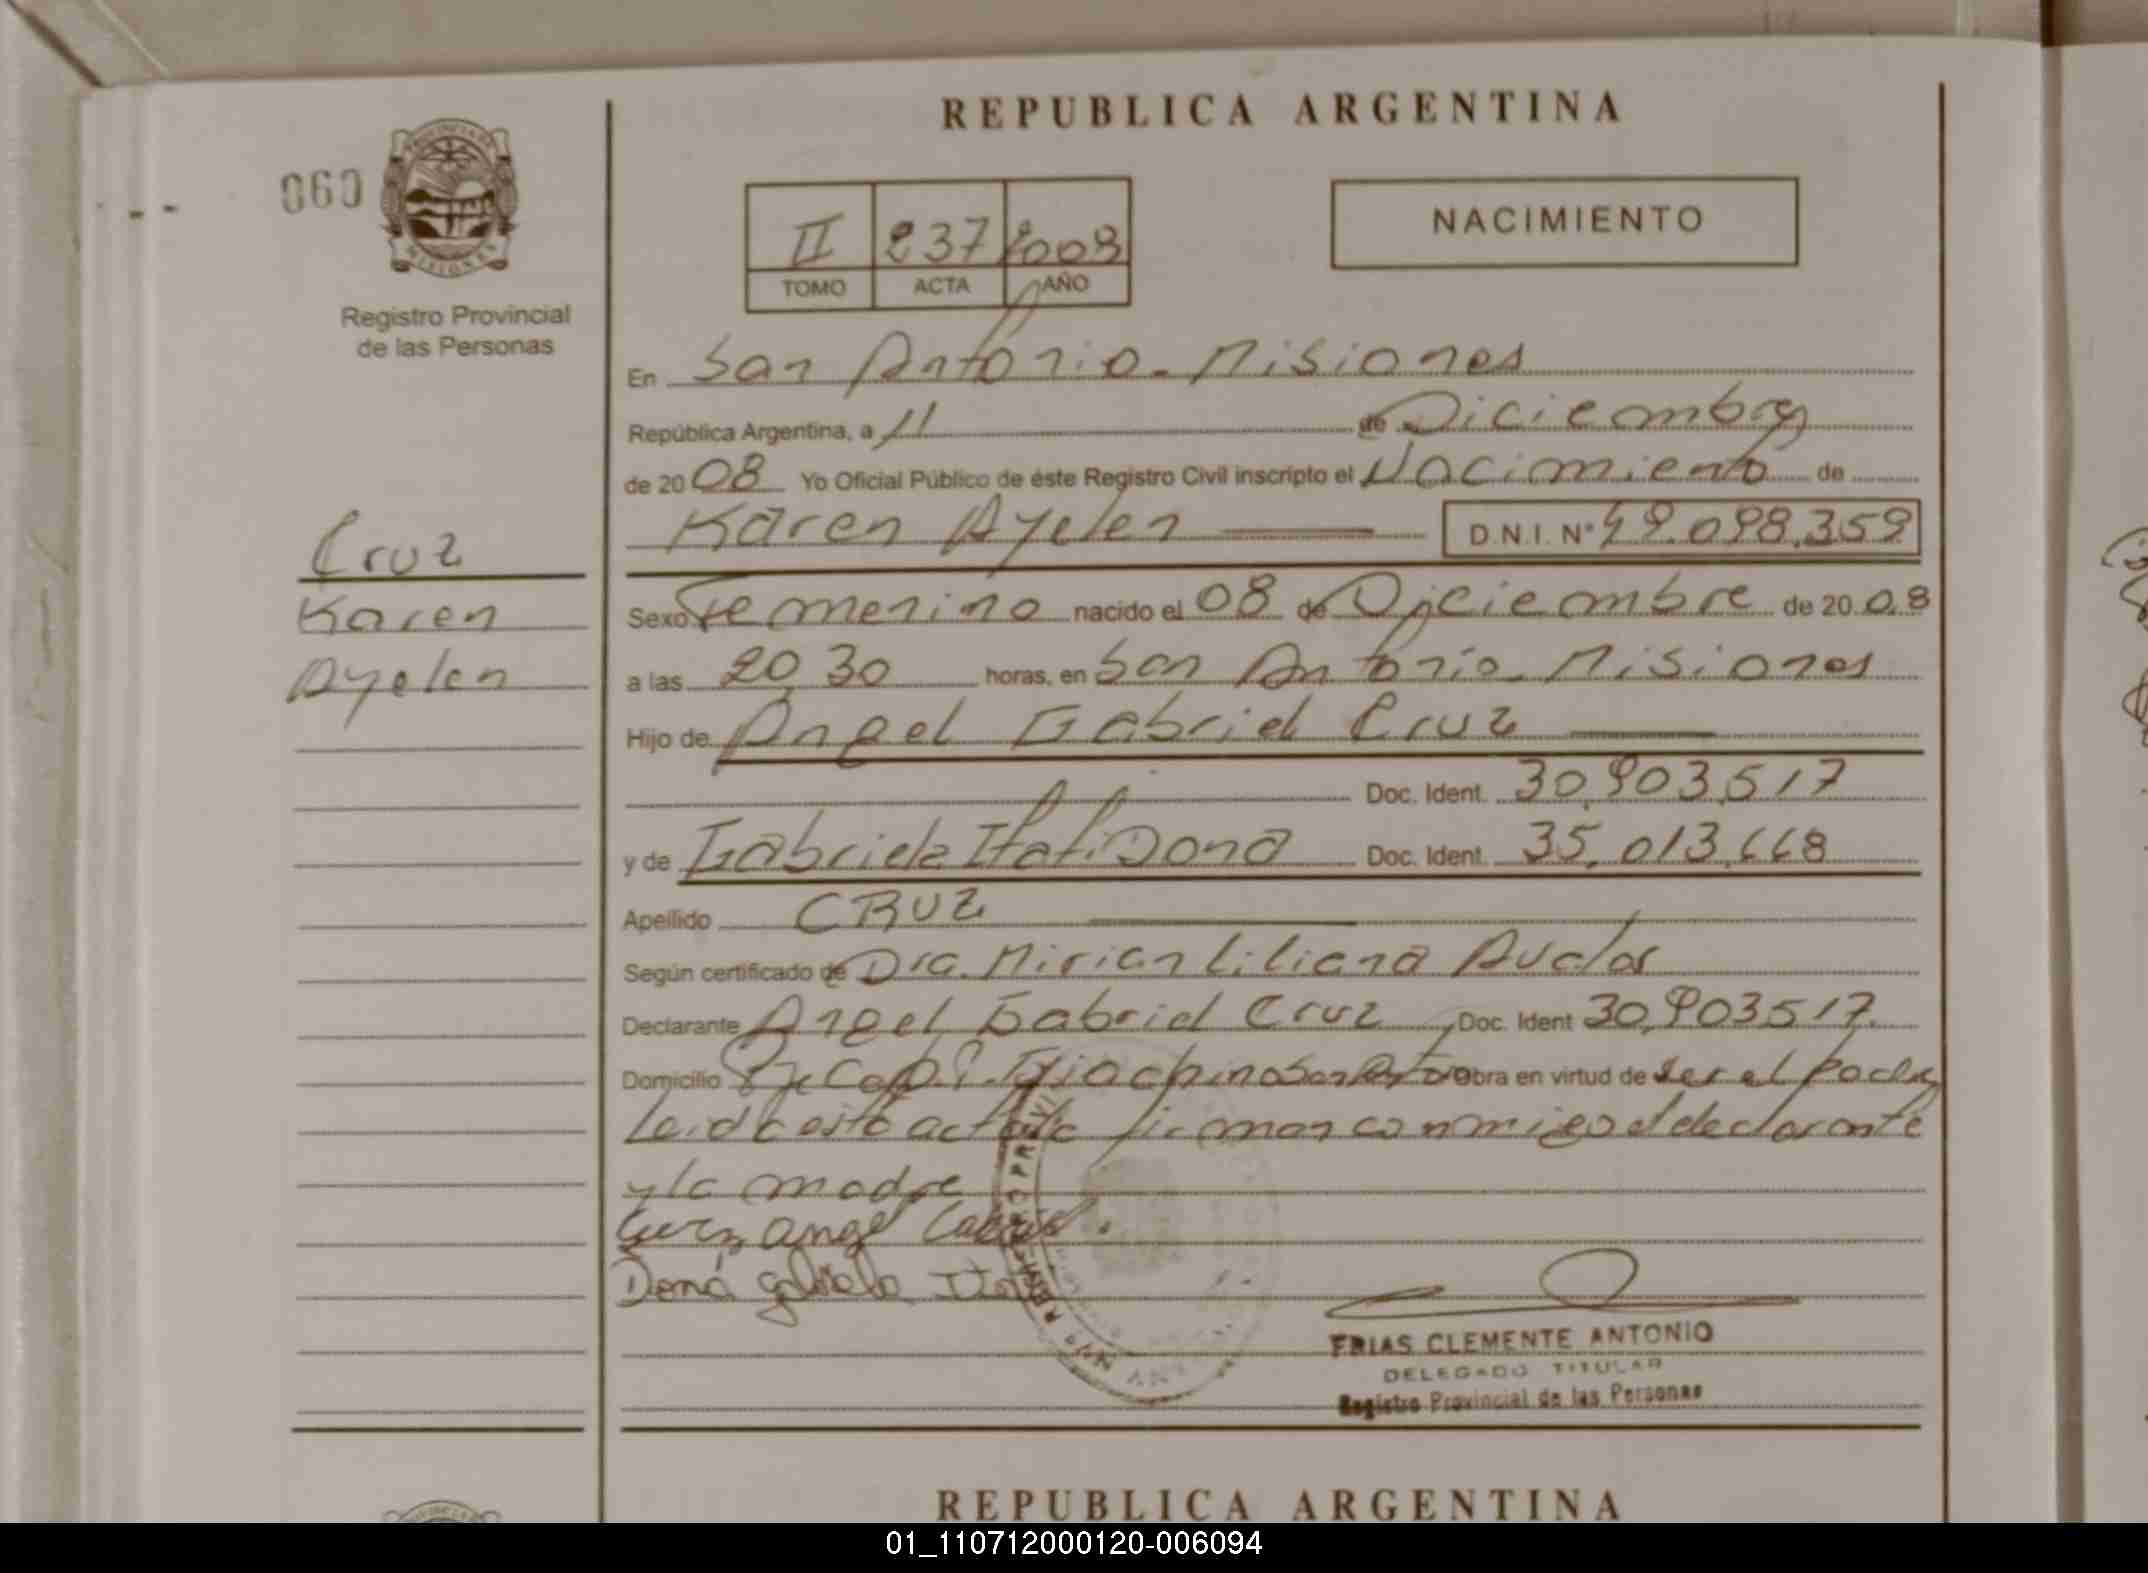 REPUBLICA ARGENTINA
060
PROVINCIA DE
MISIONES
Registro Provincial
de las Personas
II 237 2008
TOMO ACTA AÑO
NACIMIENTO
En San Antonio - Misiones
República Argentina, a 11 de Diciembre
de 2008 Yo Oficial Público de éste Registro Civil inscripto el Nacimiento de
Karen Ayelen D.N.I. Nº 49.098.359
Cruz
Karen
Ayelen
Sexo Femenino nacido el 08 de Diciembre de 2008
a las 20 30 horas, en San Antonio - Misiones
Hijo de Angel Gabriel Cruz
Doc. Ident. 30.903.517
y de Gabriela Itati Dona Doc. Ident. 35.013.668
Apellido CRUZ
Según certificado de Dra. Mirian Liliana Avalos
Declarante Angel Gabriel Cruz Doc. Ident 30.903517
Domicilio Obra en virtud de ser el padre
Leida esta acta la firman conmigo el declarante
y la madre
Cruz Angel Gabriel.
Doná Gabriela Itati
FRIAS CLEMENTE ANTONIO
DELEGADO TITULAR
Registro Provincial de las Personas
REPUBLICA ARGENTINA
01_110712000120-006094